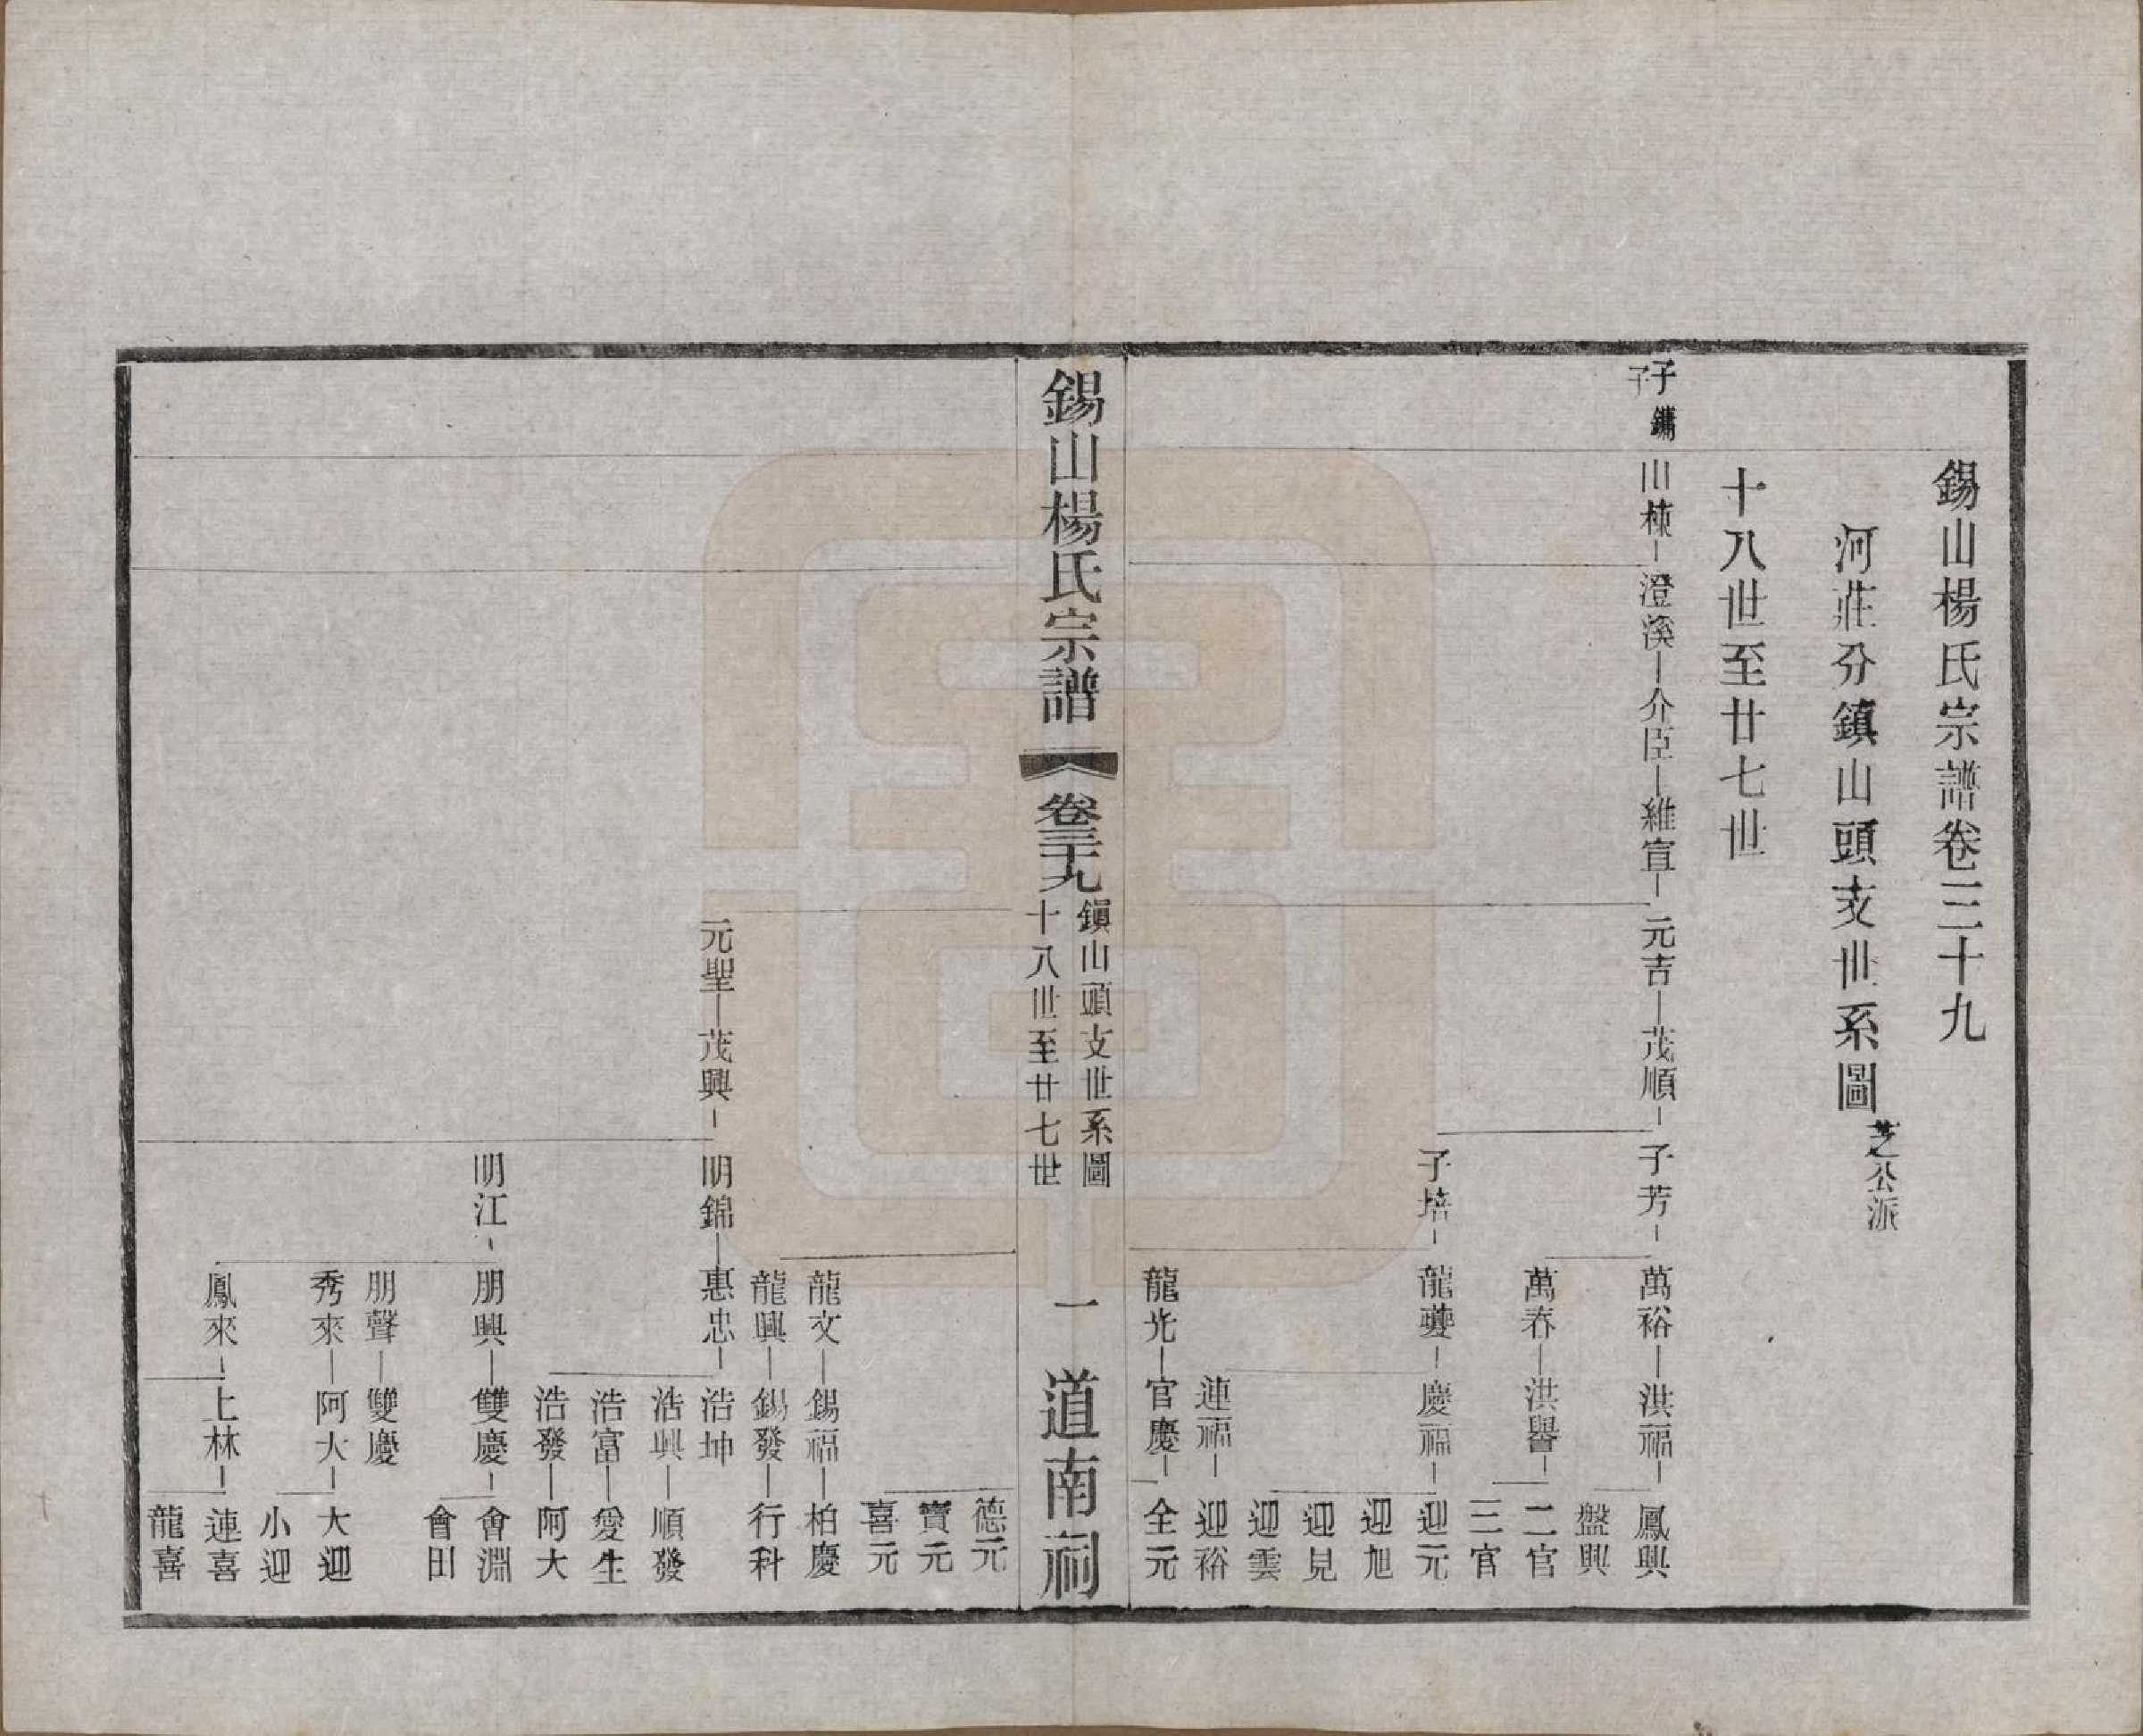 錫山楊氏宗譜卷三十九
河莊分鎮山頭支世系圖 芝公派
十八世至廿七世
子鏽 山棟 澄溪 介臣 維宣 元吉 茂順 子芳 萬裕 洪福 鳳興
子
盤興
萬春 洪譽 二官
三官
子培 龍夔 慶福 迎元
迎旭
迎見
迎雲
連福 迎裕
龍光 官慶 全元
錫山楊氏宗譜 卷三十九 鎮山頭支世系圖 十八世至廿七世 一 道南祠
德元
寶元
喜元
龍文 錫福 柏慶
龍興 錫發 行科
元聖 茂興 明錦 惠忠 浩坤
浩興 順發
浩富 愛生
浩發 阿大
明江 朋興 雙慶 會淵
會田
朋聲 雙慶
秀來 阿大 大迎
小迎
鳳來 上林 連喜
龍喜